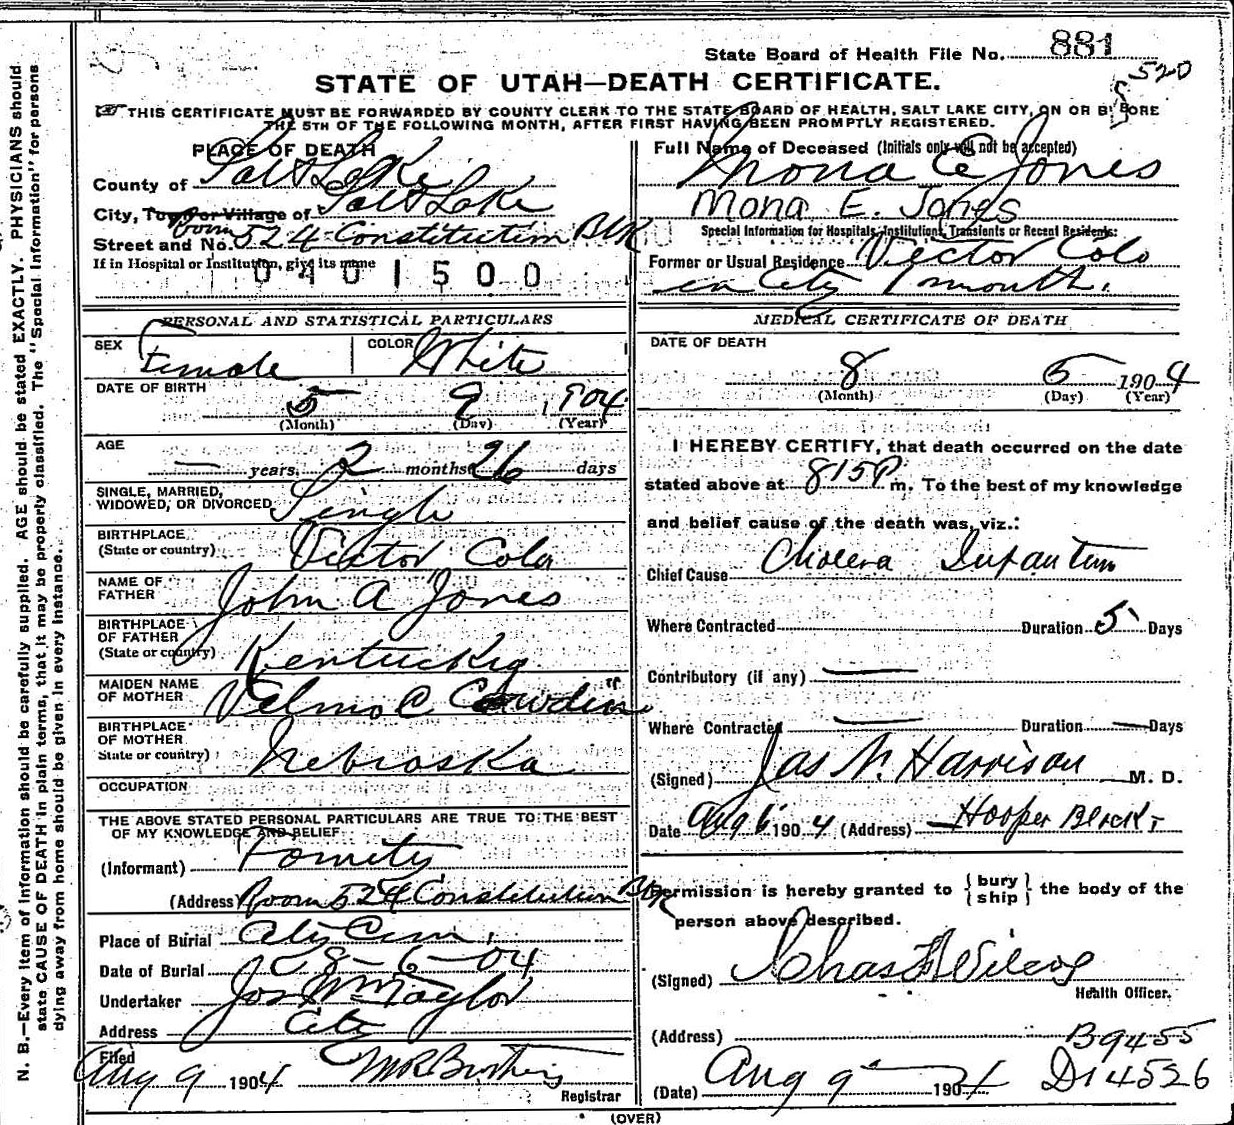 State Board of Health File No. 881
520
STATE OF UTAH—DEATH CERTIFICATE.
THIS CERTIFICATE MUST BE FORWARDED BY COUNTY CLERK TO THE STATE BOARD OF HEALTH, SALT LAKE CITY, ON OR BEFORE
THE 5TH OF THE FOLLOWING MONTH, AFTER FIRST HAVING BEEN PROMPTLY REGISTERED.
PLACE OF DEATH
County of Salt Lake
City, Town or Village of Salt Lake
Street and No. Room 524 Constitution Blk
If in Hospital or Institution, give its name
0401500
Full Name of Deceased (Initials only will not be accepted)
Mona E Jones
Mona E. Jones
Special Information for Hospitals, Institutions, Transients or Recent Residents:
Former or Usual Residence Victor Colo
in City 1 month.
PERSONAL AND STATISTICAL PARTICULARS
SEX Female COLOR White
DATE OF BIRTH
5 9 1904
(Month) (Day) (Year)
AGE
— years, 2 months 26 days
SINGLE, MARRIED,
WIDOWED, OR DIVORCED Single
BIRTHPLACE
(State or country) Victor Colo
NAME OF
FATHER John A Jones
BIRTHPLACE
OF FATHER
(State or country) Kentucky
MAIDEN NAME
OF MOTHER C
BIRTHPLACE
OF MOTHER
State or country) Nebraska
OCCUPATION
THE ABOVE STATED PERSONAL PARTICULARS ARE TRUE TO THE BEST
OF MY KNOWLEDGE AND BELIEF
(Informant)
(Address) Room 524 Constitution Blk
Place of Burial City Cem.
Date of Burial 8-6-04
Undertaker Jos Wm Taylor
Address City
Filed
Aug 9 1904
Registrar
MEDICAL CERTIFICATE OF DEATH
DATE OF DEATH
8 5 1904
(Month) (Day) (Year)
I HEREBY CERTIFY, that death occurred on the date
stated above at 815 P m. To the best of my knowledge
and belief cause of the death was, viz.:
Chief Cause Cholera Infantum
Where Contracted Duration 5 Days
Contributory (if any) —
Where Contracted — Duration — Days
(Signed) Jas N. Harrison M. D.
Date Aug 6 1904 (Address) Hooper Block
Permission is hereby granted to { bury ship } the body of the
person above described.
(Signed) Chas F Wilcox
Health Officer.
(Address)
B9455
(Date) Aug 9 1904 D14526
(OVER)
N. B.—Every item of information should be carefully supplied. AGE should be stated EXACTLY. PHYSICIANS should
state CAUSE OF DEATH in plain terms, that it may be properly classified. The "Special Information" for persons
dying away from home should be given in every instance.